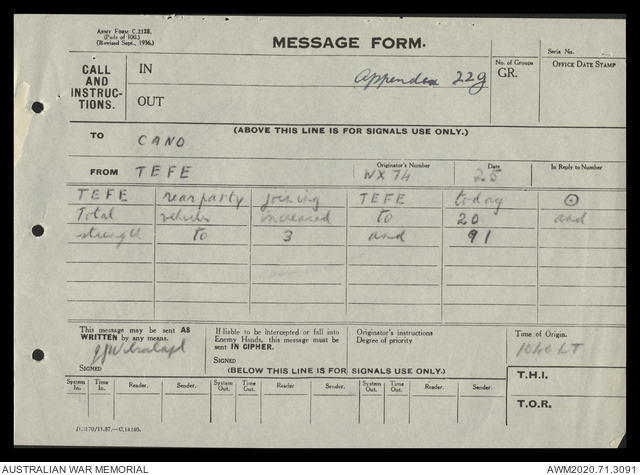 ARMY FORM C.2128.
(Pads of 100.)
(Revised Sept., 1936.)
MESSAGE FORM.
Serial No.
CALL
AND
INSTRUC-
TIONS.
IN
OUT
Appendix 22g
No. of Groups
GR.
OFFICE DATE STAMP
(ABOVE THIS LINE IS FOR SIGNALS USE ONLY.)
TO CANO
FROM TEFE
Originator's Number
WX 74
Date
25
In Reply to Number
TEFE rear party joining TEFE today ⊙
Total vehicles increased to 20 and
strength to 3 and 91
This message may be sent AS
WRITTEN by any means.
SIGNED
If liable to be intercepted or fall into
Enemy Hands, this message must be
sent IN CIPHER.
SIGNED
Originator's instructions
Degree of priority
Time of Origin.
1040 LT
(BELOW THIS LINE IS FOR SIGNALS USE ONLY.)
T.H.I.
T.O.R.
System In. Time In. Reader. Sender. System Out. Time Out. Reader. Sender. System Out. Time Out. Reader. Sender.
AUSTRALIAN WAR MEMORIAL
AWM2020.71.3091